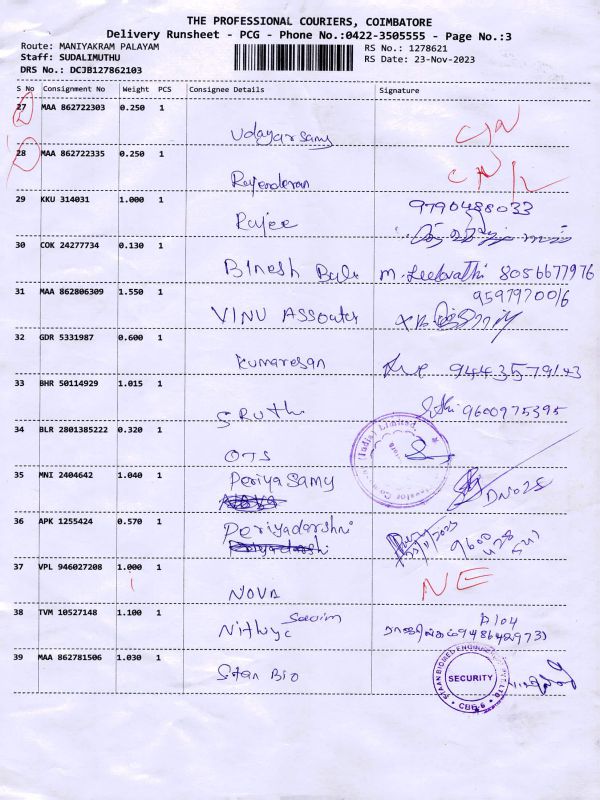 THE PROFESSIONAL COURIERS, COIMBATORE
Delivery Runsheet - PCG - Phone No.:0422-3505555 - Page No.:3
Route: MANIYAKRAM PALAYAM
Staff: SUDALIMUTHU
DRS No.: DCJB127862103
RS No.: 1278621
RS Date: 23-Nov-2023
S No Consignment No Weight PCS Consignee Details Signature
27 MAA 862722303 0.250 1
Udayarsamy
28 MAA 862722335 0.250 1
Rajenderan
29 KKU 314031 1.000 1 9790488033
Rajee
30 COK 24277734 0.130 1
Binesh Balu M. Leelavathi 8056677976
31 MAA 862806309 1.550 1 9597970016
VINU Assoater
32 GDR 5331987 0.600 1
Kumaresan 9444357943
33 BHR 50114929 1.015 1
Sruthi 9600975395
34 BLR 2801385222 0.320 1
OTS
35 MNI 2404642 1.040 1
Periyasamy
36 APK 1255424 0.570 1
Periyadarshni
37 VPL 946027208 1.000 1 NE
NOVA
38 TVM 10527148 1.100 1 A104
Nithyc 9486429731
39 MAA 862781506 1.030 1
Stan Bio
SECURITY
CBE-6